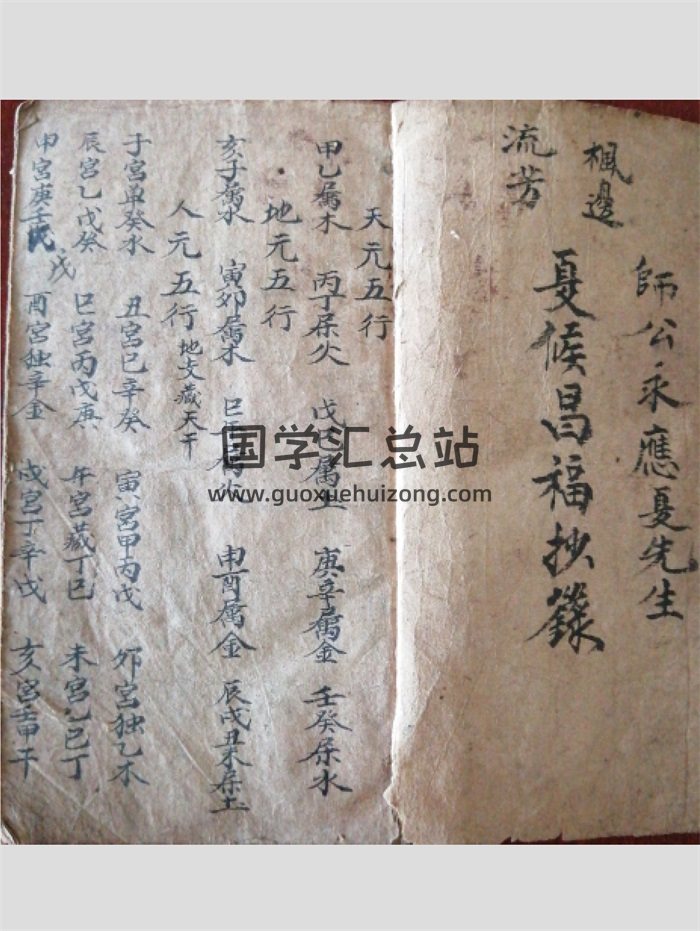 師公永應夏先生
楓邊
夏候昌福抄錄
流芳
天元五行
甲乙属木 丙丁属火 戊己属土 庚辛属金 壬癸属水
地元五行
亥子属水 寅卯属木 巳午属火 申酉属金 辰戌丑未属土
人元五行 地支藏天干
子宮单癸水 丑宮己辛癸 寅宮甲丙戊 卯宮独乙木
辰宮乙戊癸 巳宮丙戊庚 午宮藏丁己 未宮乙己丁
申宮庚壬戊 酉宮独辛金 戌宮丁辛戊 亥宮壬甲干
国学汇总站
www.guoxuehuizong.com